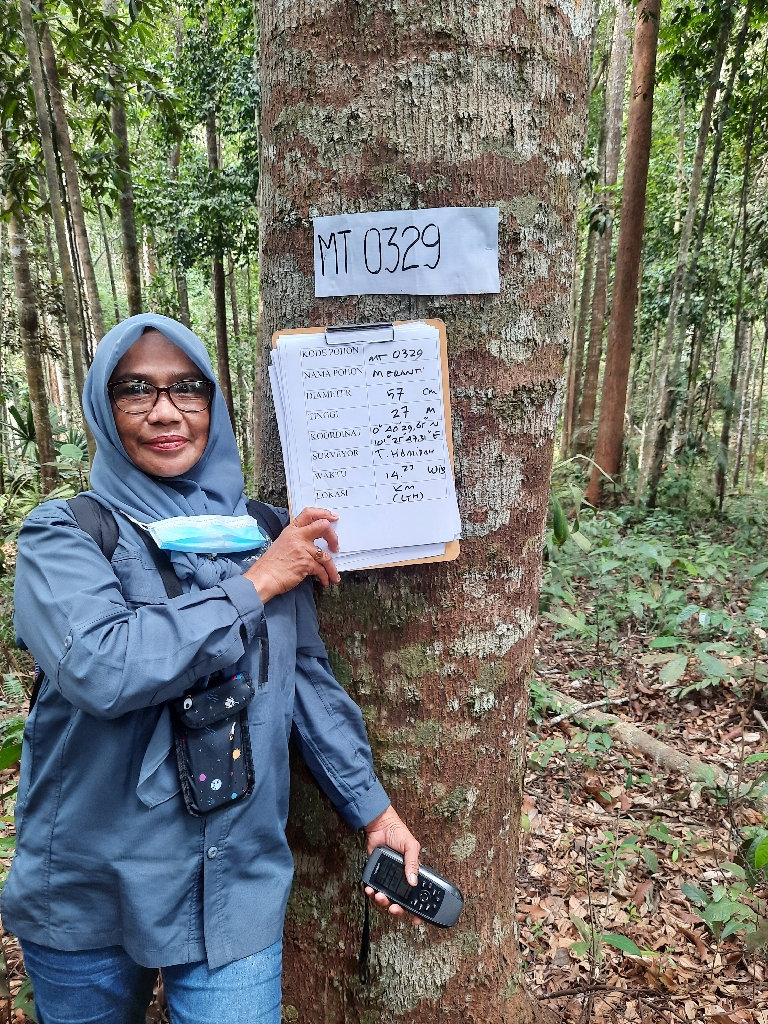 MT 0329
KODE POHON MT 0329
NAMA POHON MERANTI
DIAMETER 57 CM
TINGGI 27 M
KOORDINAT 0° 40' 29,65" N
101° 25' 47,31" E
SURVEYOR T. HAMIDAH
WAKTU 14.27 WIB
LOKASI KM
(LTH)